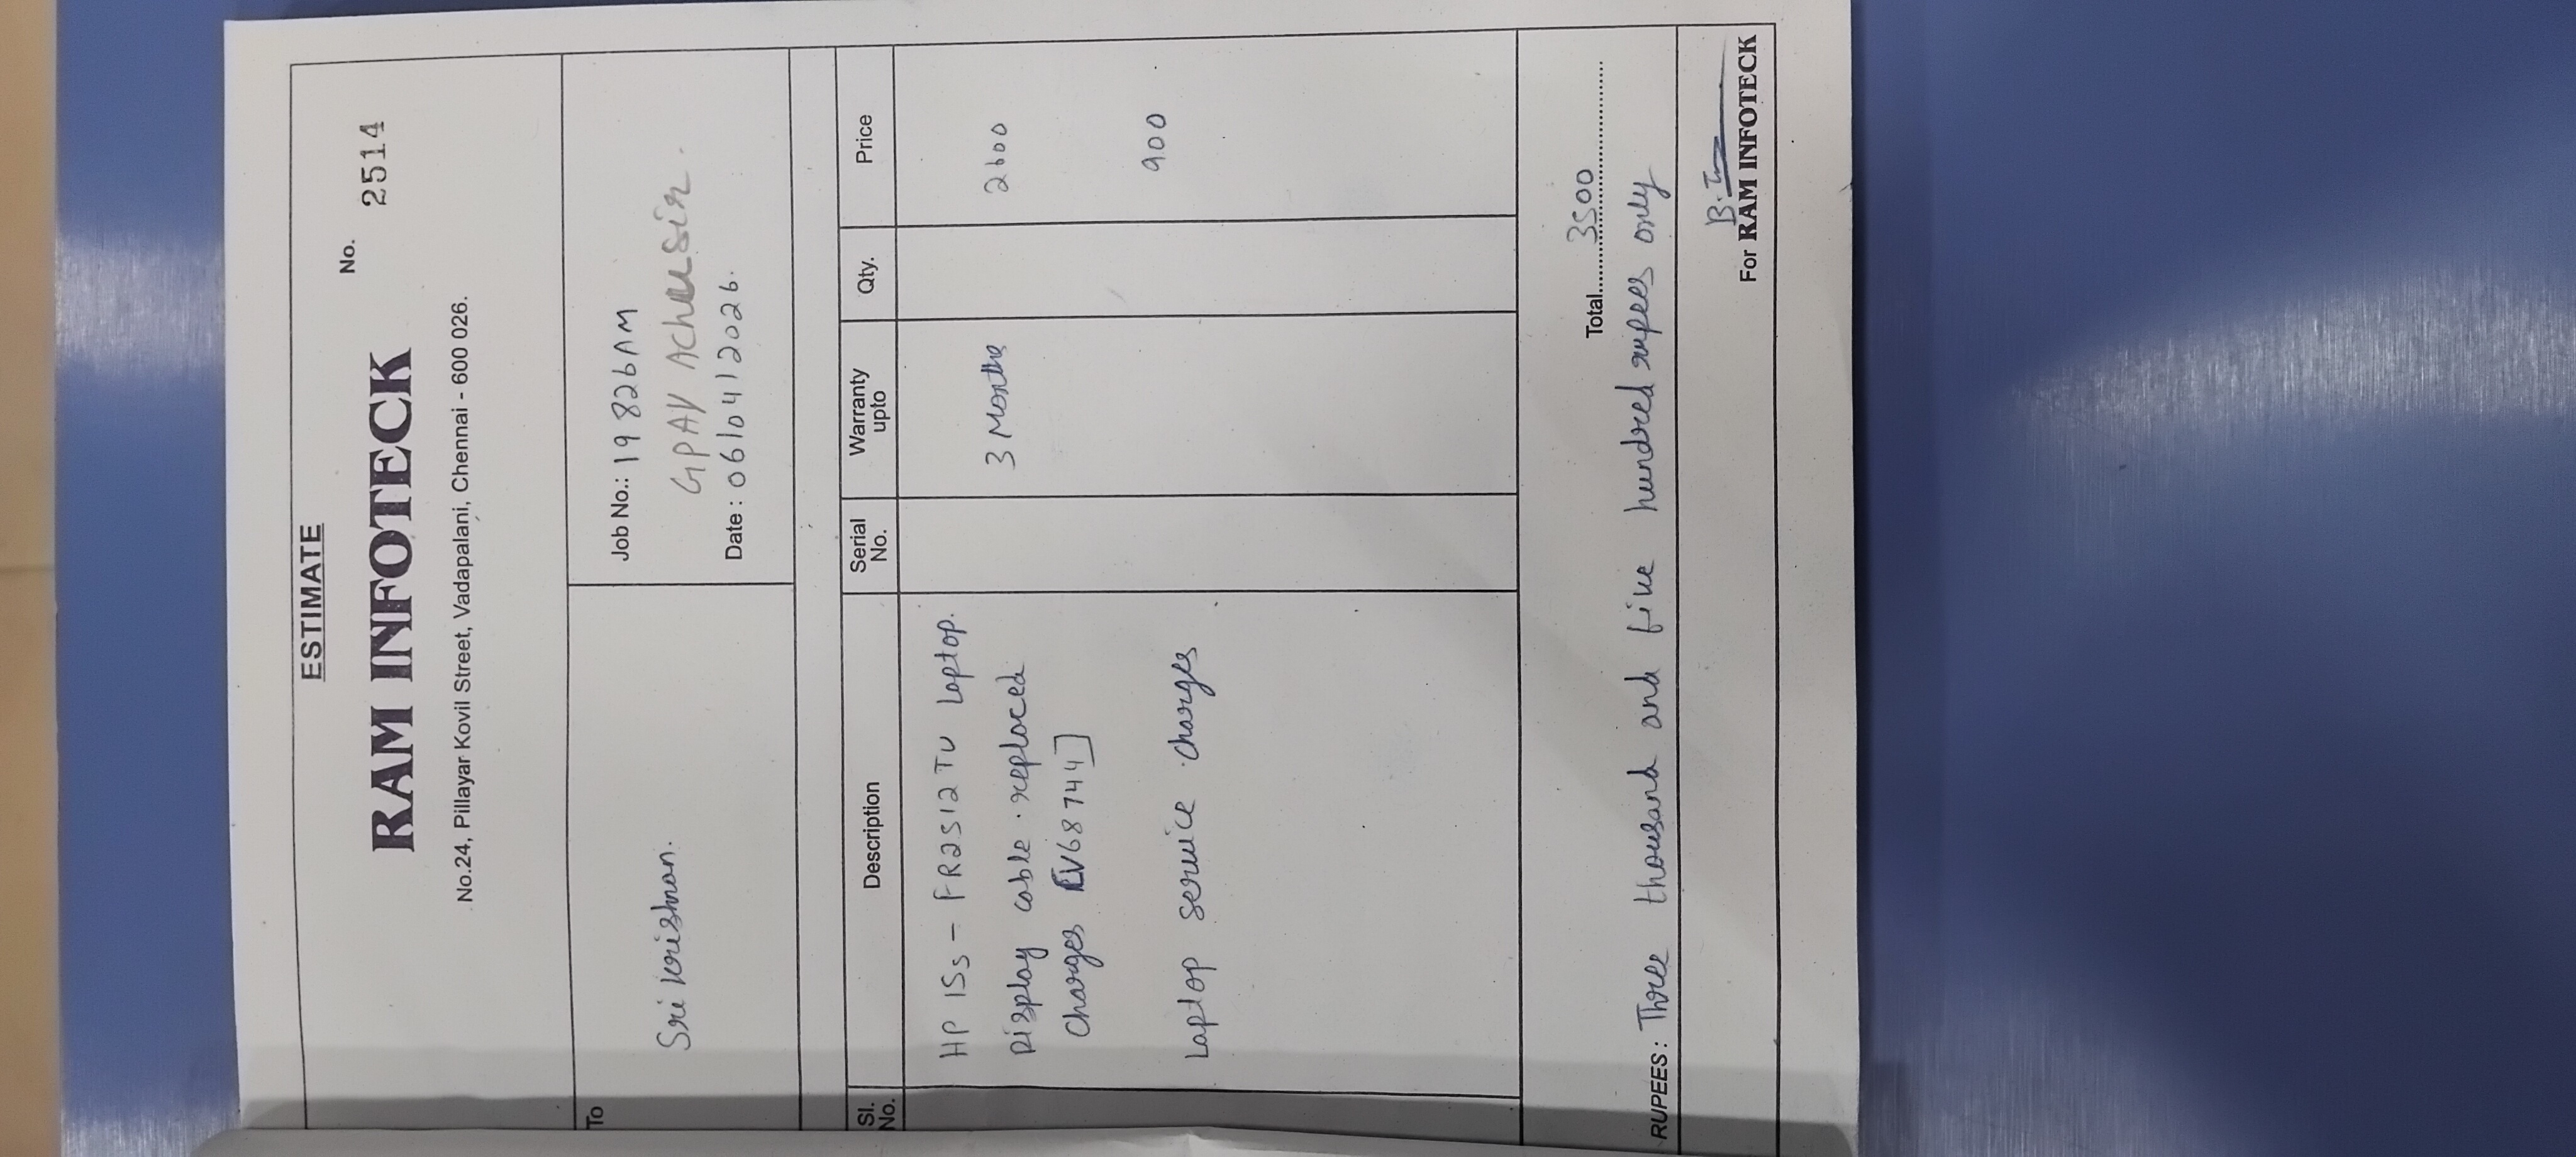 ESTIMATE
No. 2514
RAM INFOTECK
No.24, Pillayar Kovil Street, Vadapalani, Chennai - 600 026.
To
Sri krishnan.
Job No.: 19826AM
GPAY
Date : 06/04/2026.
Sl. No. Description Serial No. Warranty upto Qty. Price
HP 15s - FR2512TU Laptop.
Display cable replaced 3 Months 2600
Charges [V68744]
Laptop service charges 900
Total 3500
RUPEES: Three thousand and five hundred rupees only
For RAM INFOTECK